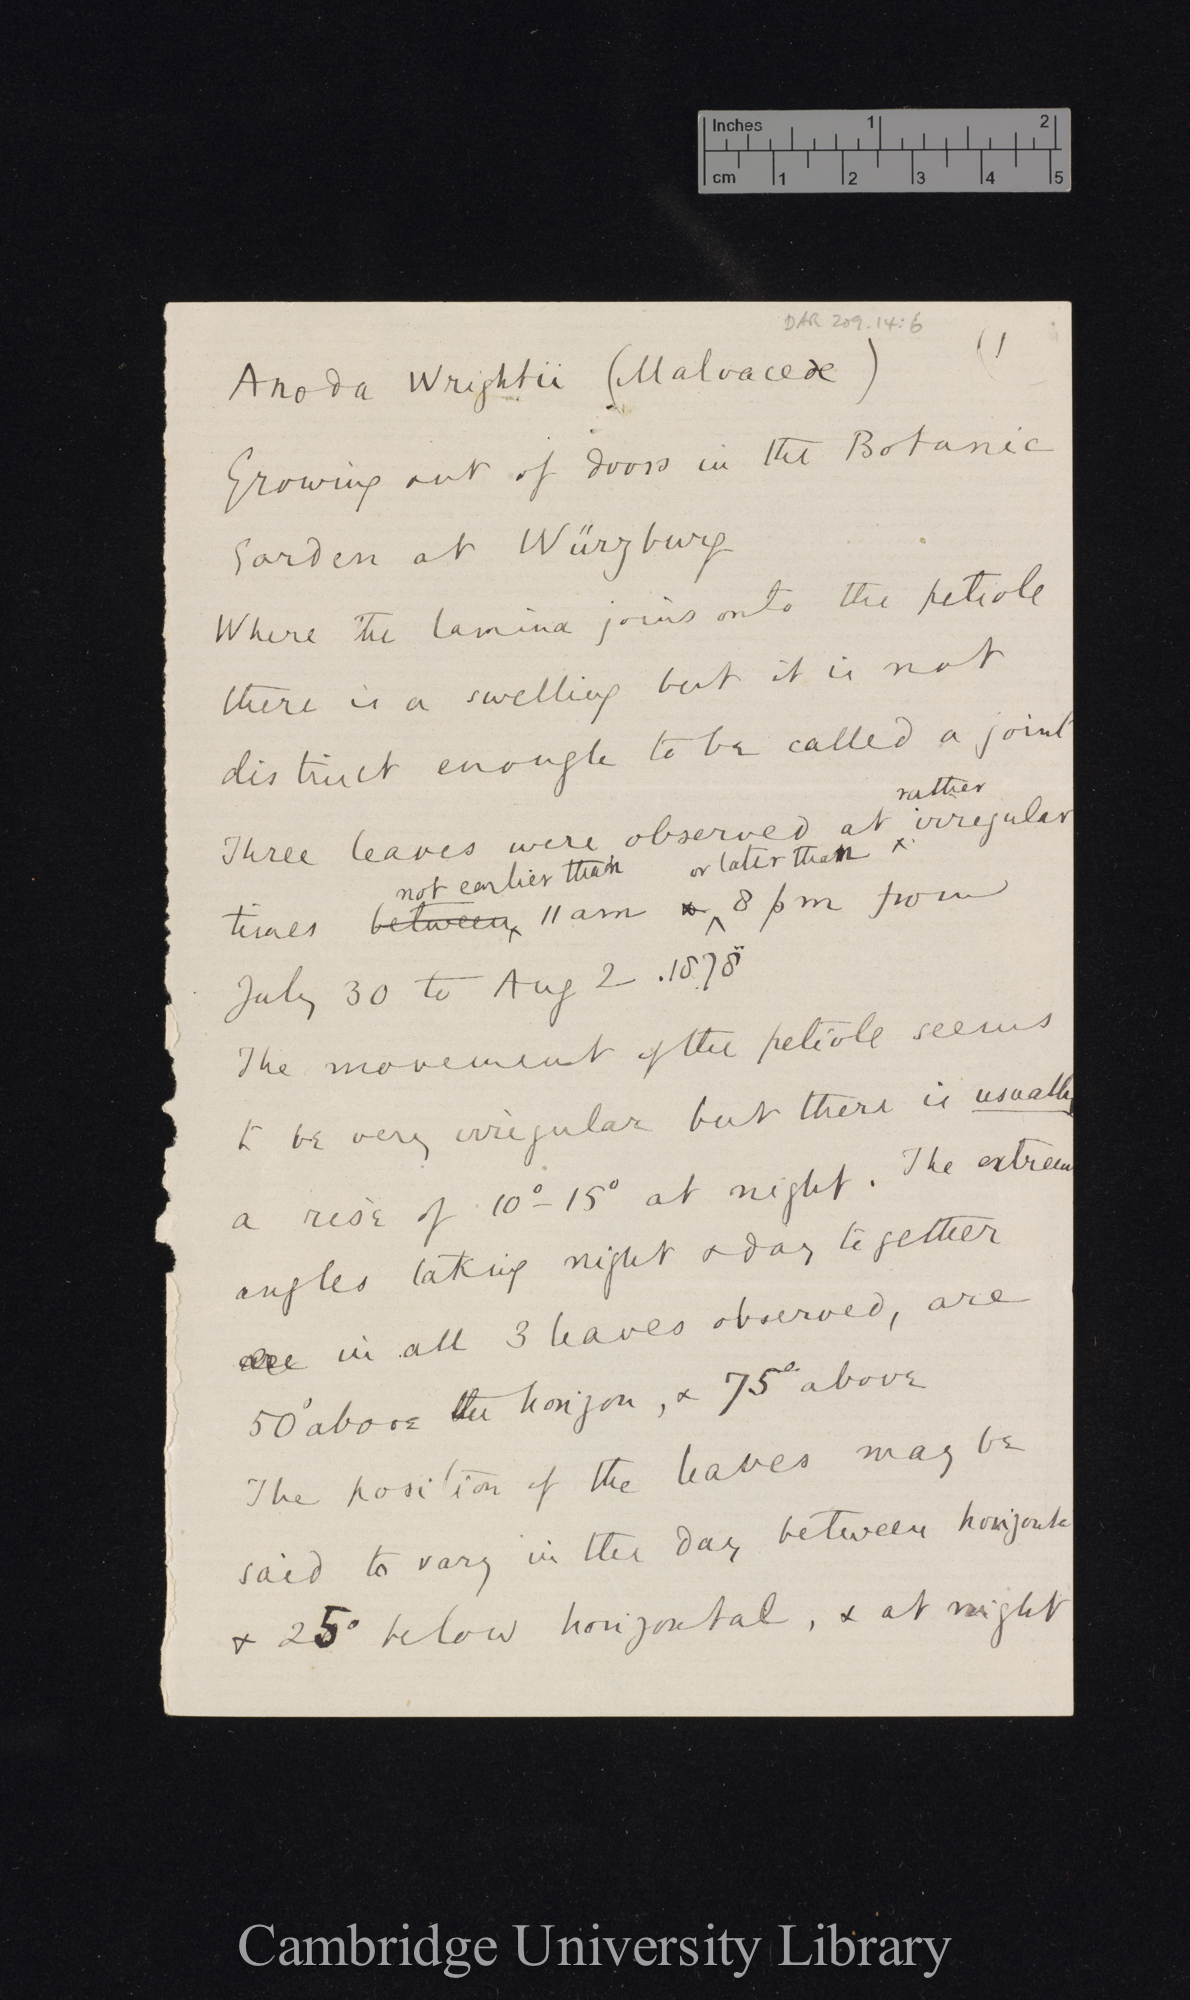 Inches 1 2
cm 1 2 3 4 5
DAR 209.14:6
(1
Anoda Wrightii (Malvaceæ)
Growing out of doors in the Botanic
Garden at Würzburg
Where the lamina joins onto the petiole
there is a swelling but it is not
distinct enough to be called a joint
rather
Three leaves were observed at irregular
not earlier than or later than
times between 11 am 8 pm from
July 30 to Aug 2 .1878
The movement of the petiole seems
to be very irregular but there is usually
a rise of 10°–15° at night. The extrem
angles taking night & day together
are in all 3 leaves observed, are
50° above the horizon, & 75° above
The position of the leaves may be
said to vary in the day between horizonta
& 25° below horizontal, & at night
Cambridge University Library